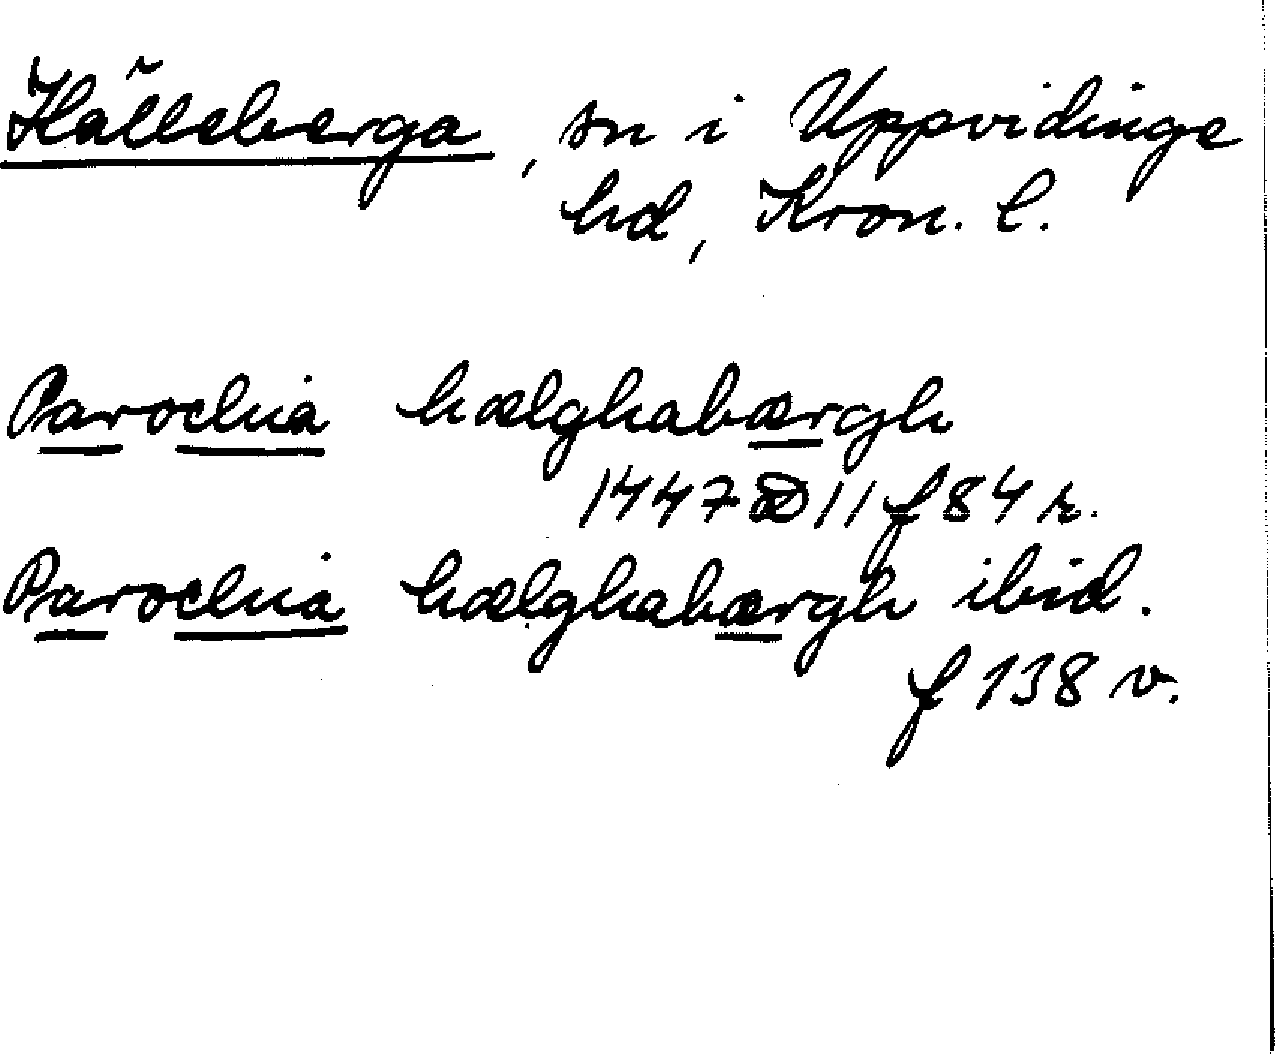 Hälleberga, sn i Uppvidinge
hd, Kron. l.
Parochia hælghabærgh
1447 11 f 84 r.
Parochia hælghabærgh ibid.
f 138 v.